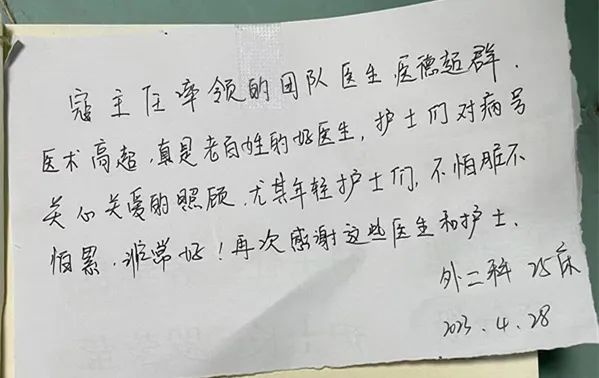 寇主任牵领的团队医生,医德超群.
医术高超,真是老百姓的好医生,护士们对病号
关心关爱的照顾,尤其年轻护士们,不怕脏不
怕累,非常好!再次感谢这些医生和护士.
外二科 25床
2023.4.28